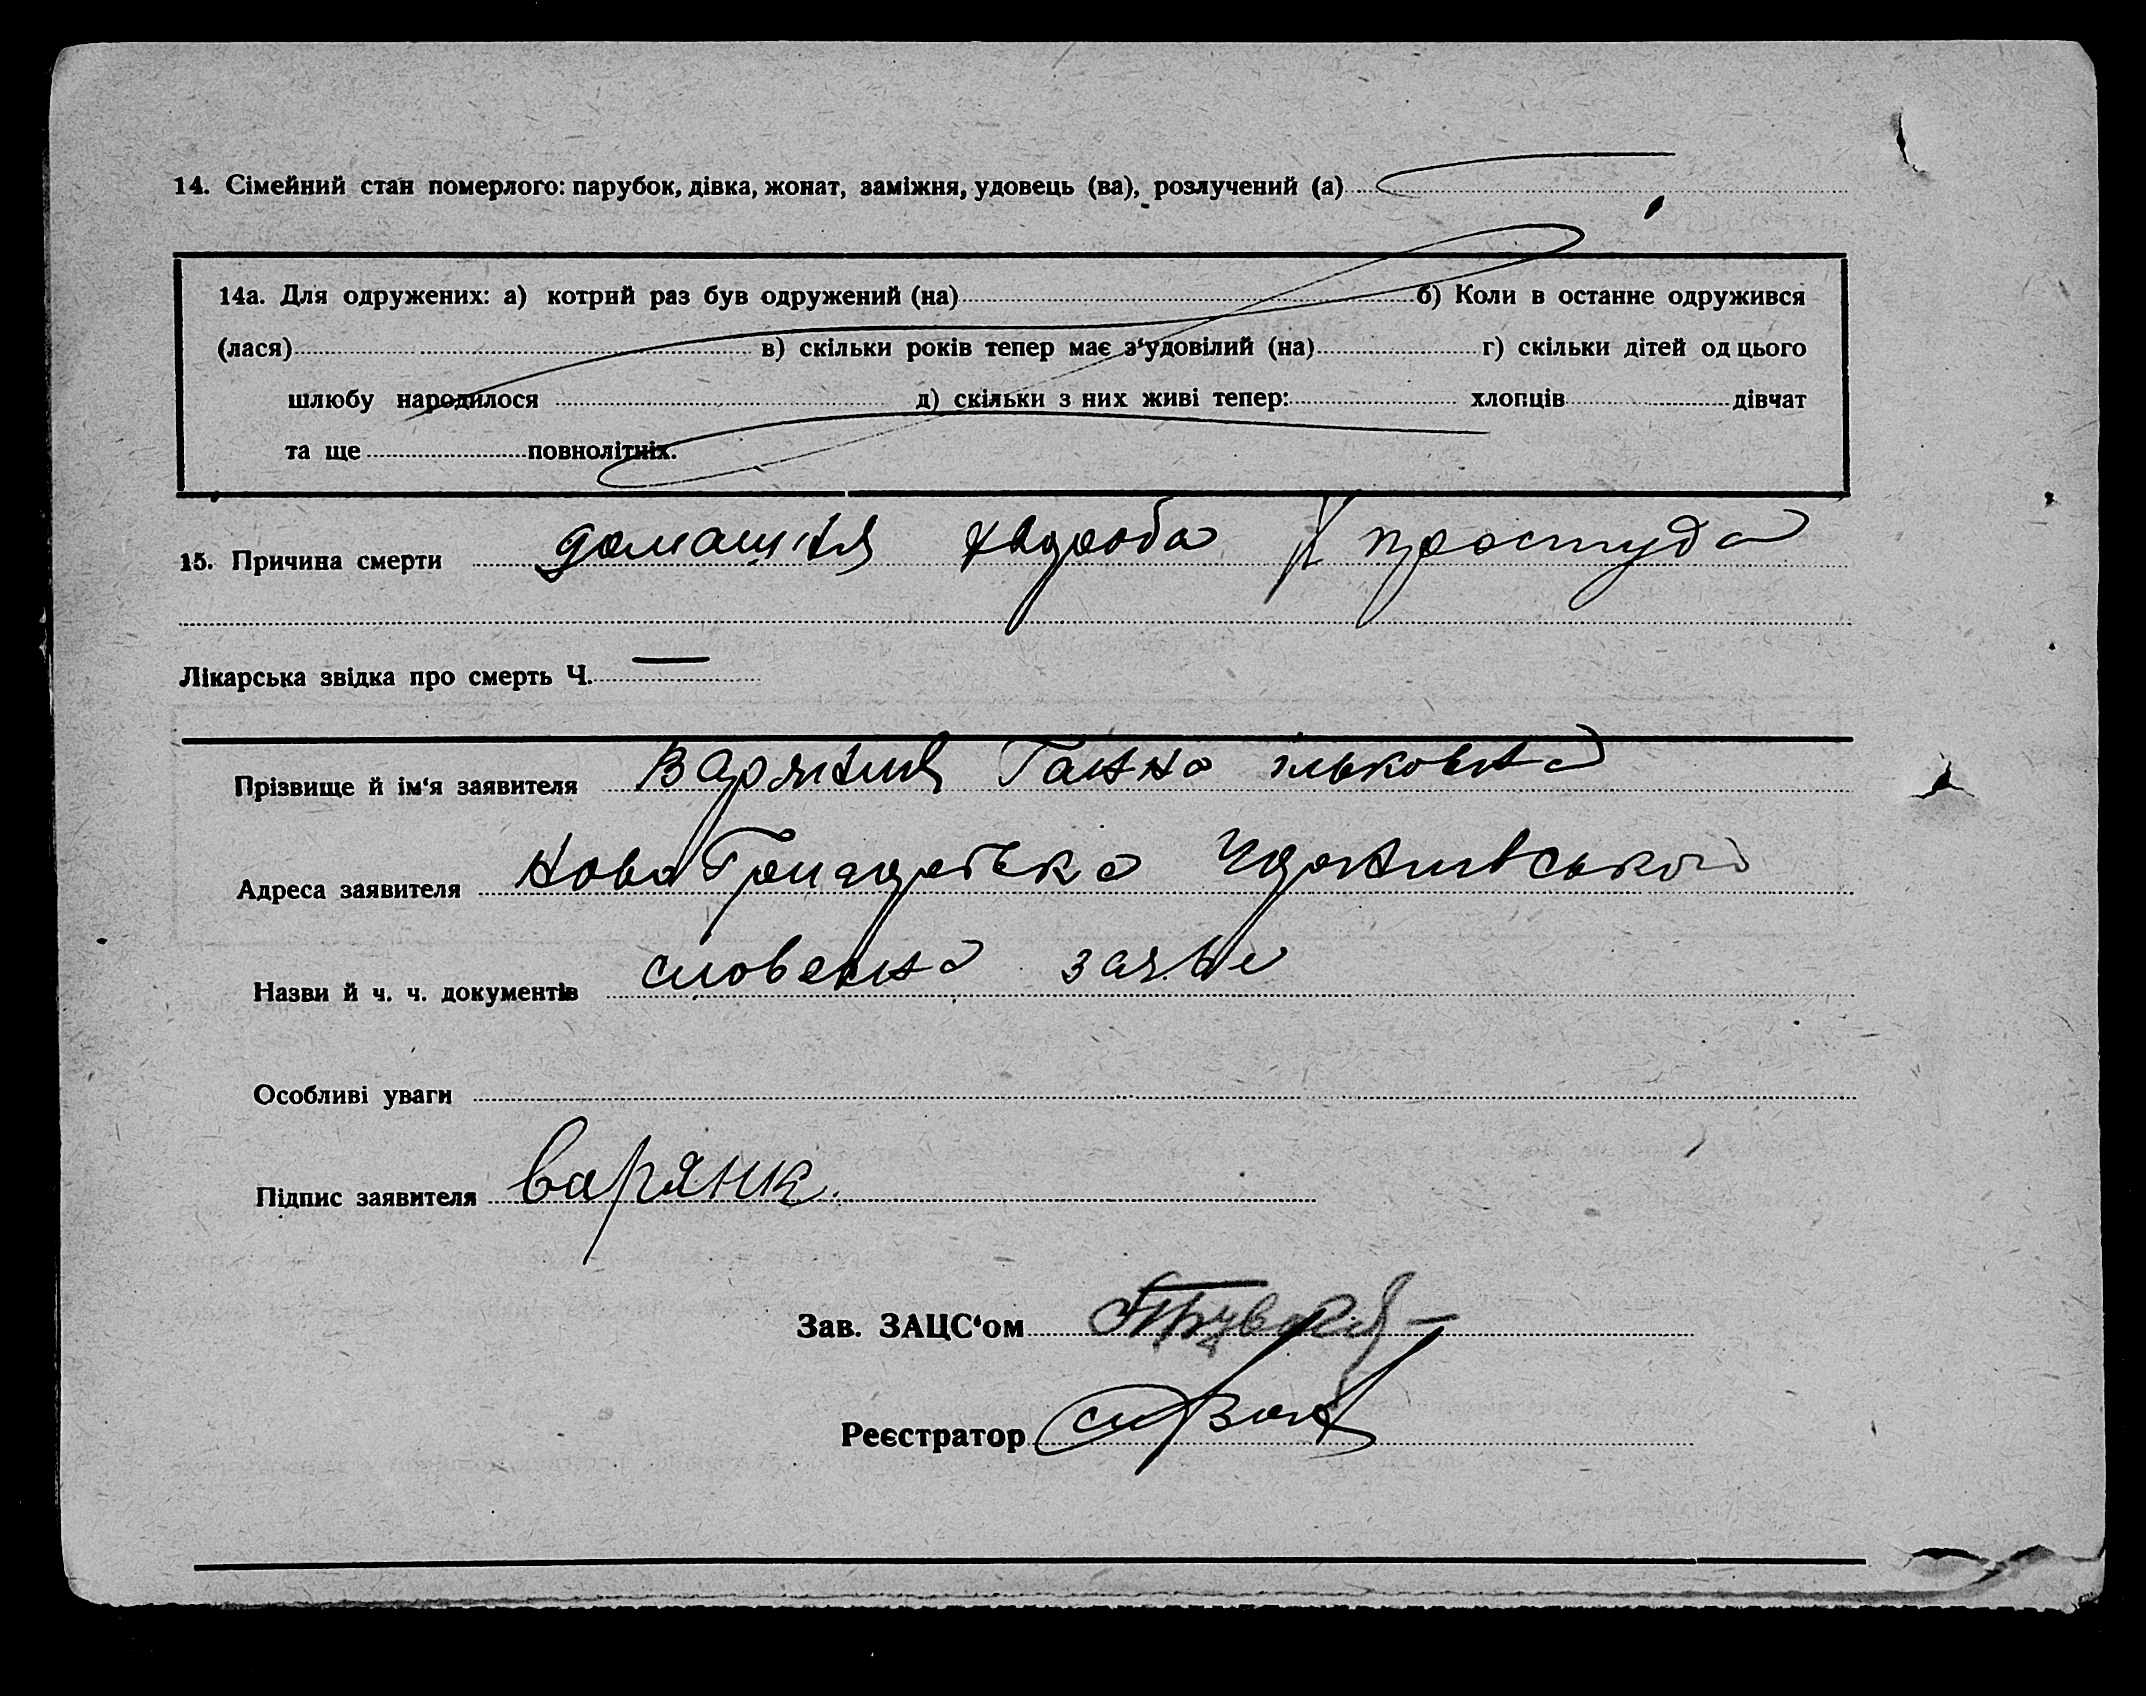 14. Сімейний стан померлого: парубок, дівка, жонат, заміжня, удовець (ва), розлучений (а)
14а. Для одружених: а) котрий раз був одружений (на) б) Коли в останне одружився
(лася) в) скільки років тепер має з'удовілий (на) г) скільки дітей од цього
шлюбу народилося д) скільки з них живі тепер: хлопців дівчат
та ще повнолітніх.
15. Причина смерти домашня хвороба простуда
Лікарська звідка про смерть Ч. —
Прізвище й ім'я заявителя Ганна ільковна
Адреса заявителя Нова
Назви й ч. ч. документів словесна заява
Особливі уваги
Підпис заявителя Варянк
Зав. ЗАЦС'ом
Реєстратор